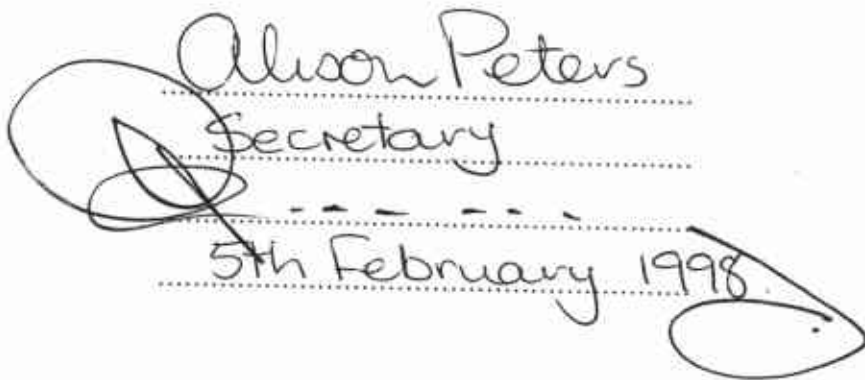 Alison Peters
Secretary
5th February 1998